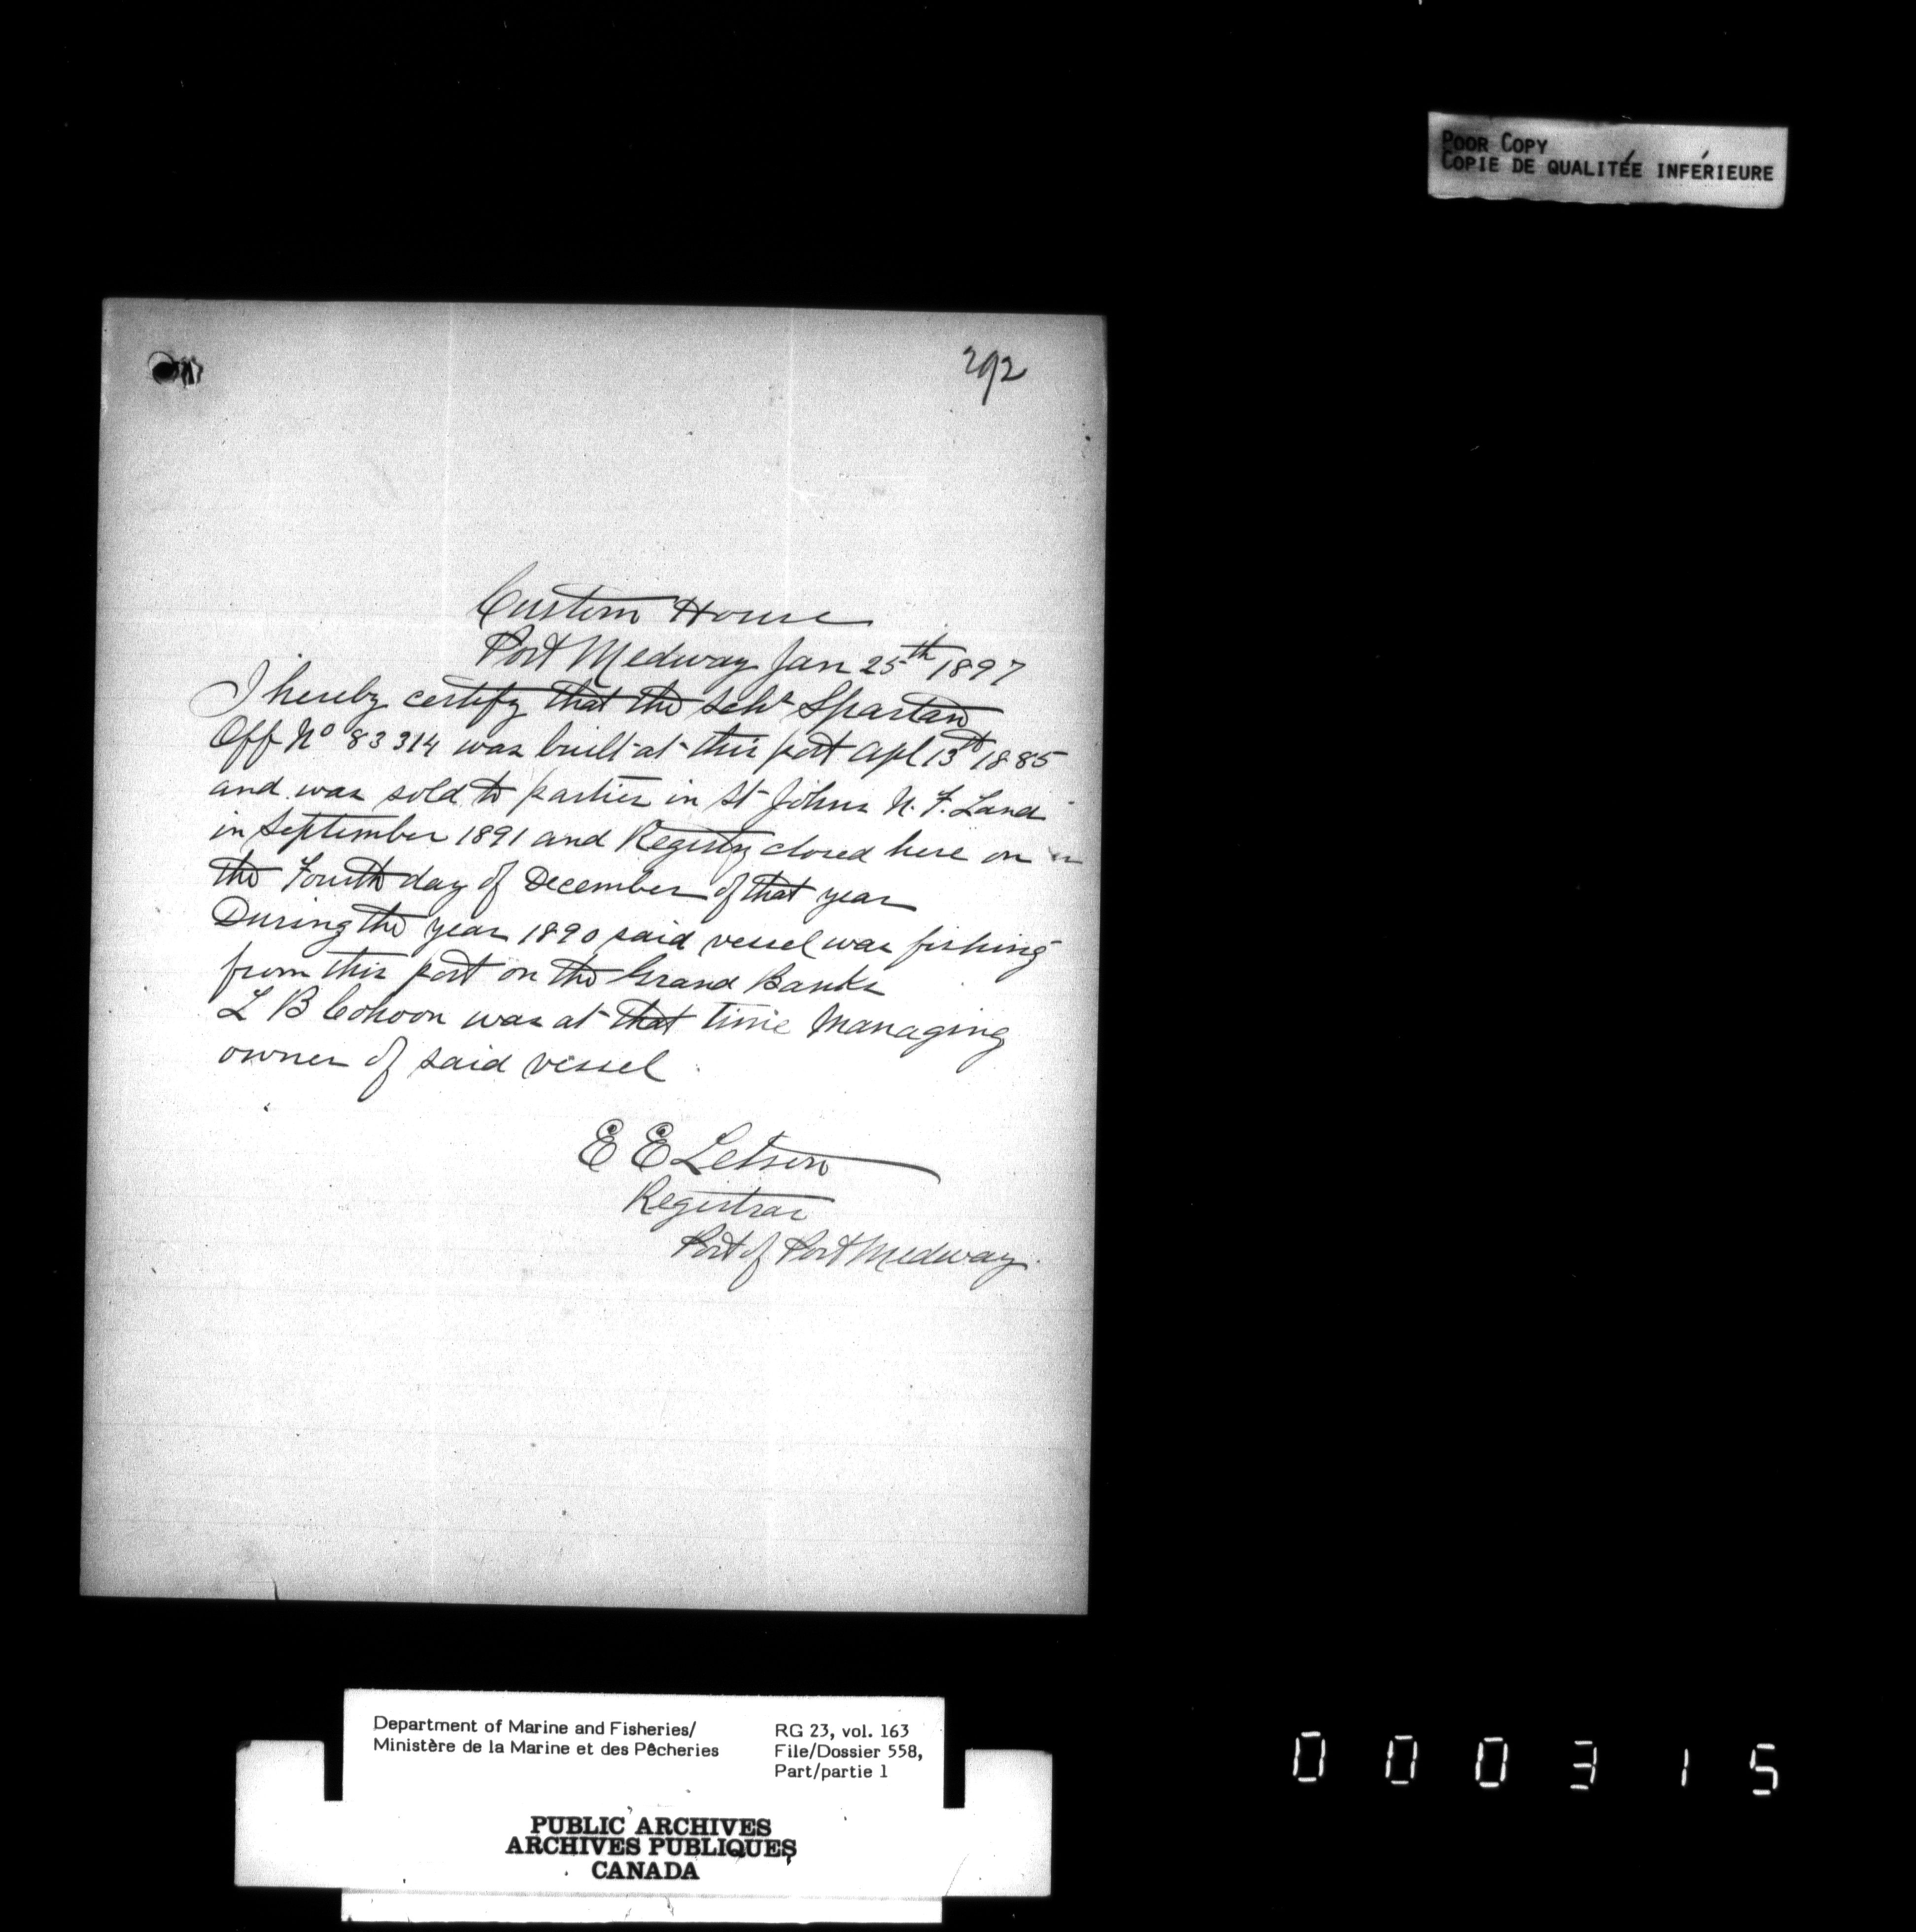 POOR COPY
COPIE DE QUALITÉE INFÉRIEURE
292
Custom House
Port Medway Jan 25th 1897
I hereby certify that the Schr Spartan
Off No 83314 was built at this port Apl 13th 1885
and was sold to parties in St Johns N. F. Land
in September 1891 and Registry closed here on
the Fourth day of December of that year
During the year 1890 said vessel was fishing
from this port on the Grand Banks
L B Cohoon was at that time Managing
owner of said vessel
E E Letson
Registrar
Port of Port Medway.
Department of Marine and Fisheries/
Ministère de la Marine et des Pêcheries
RG 23, vol. 163
File/Dossier 558,
Part/partie 1
PUBLIC ARCHIVES
ARCHIVES PUBLIQUES
CANADA
000315